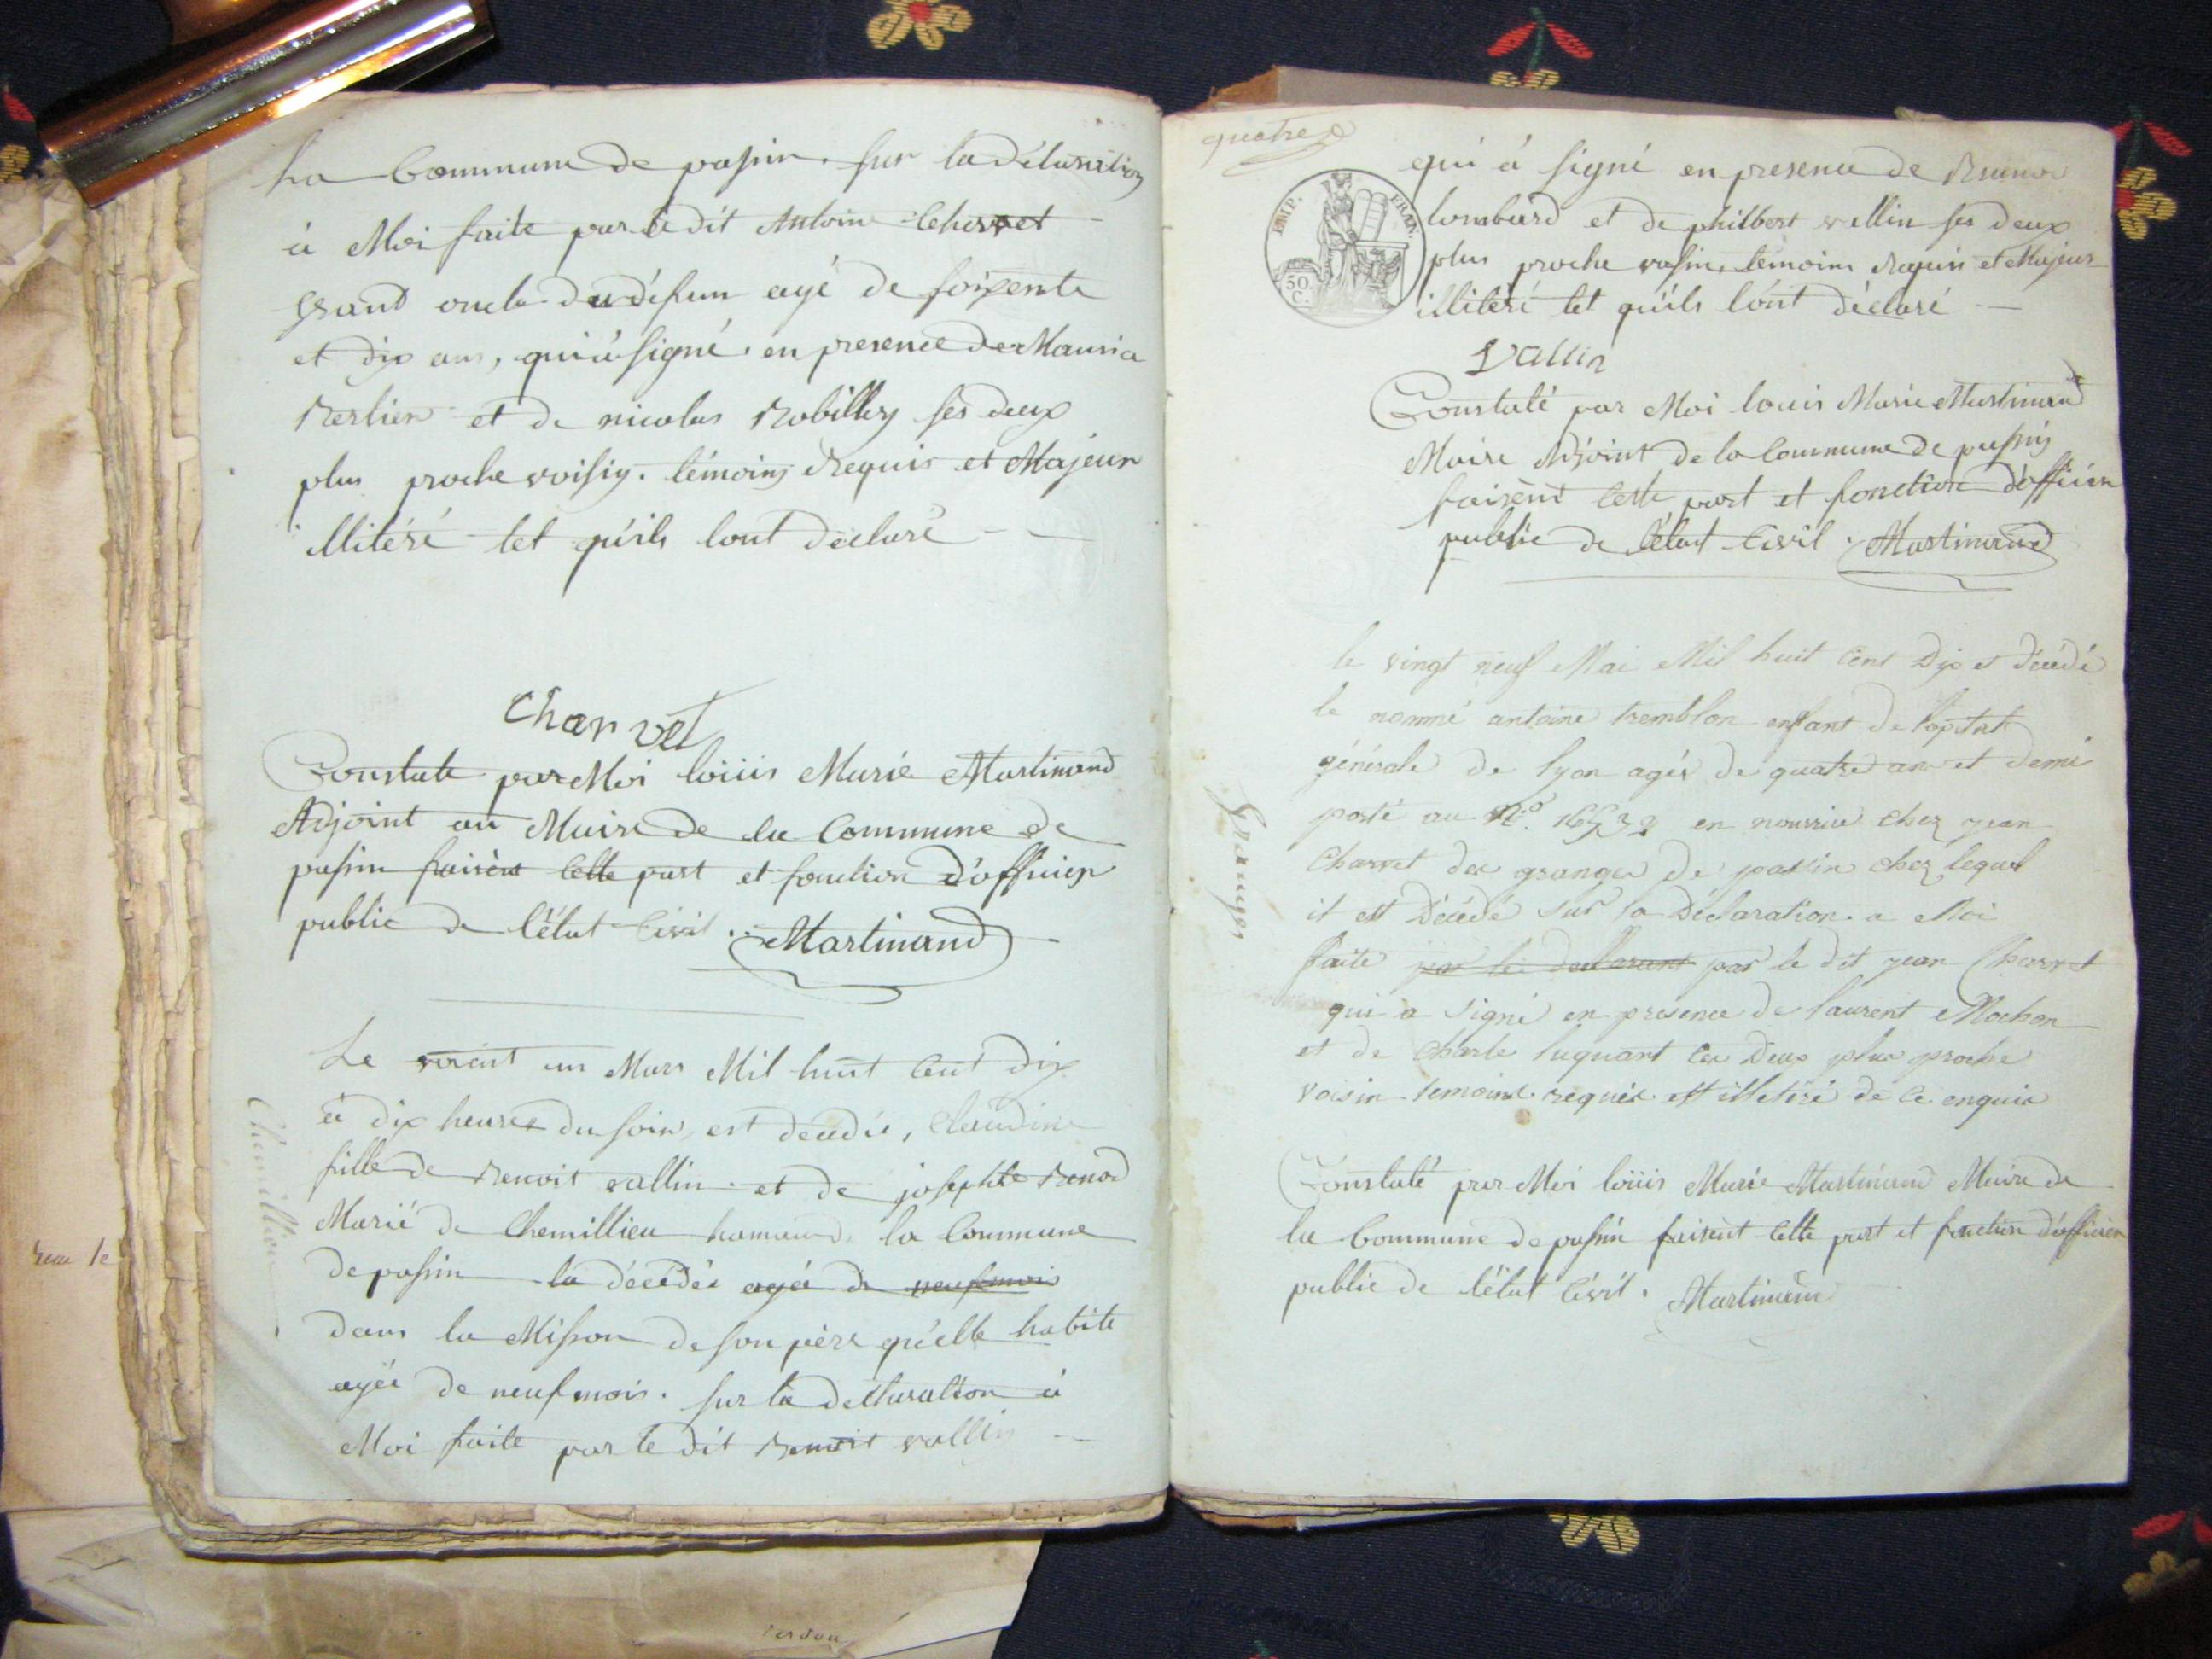 La Commune de passin. sur la déclaration
à Moi faite par le dit Antoine Chervet
grand oncle du défun agé de soixente
et dix ans, qui à signé. en presence de Mauric
Berlier et de nicolas Robilley ses deux
plus proche voisin. témoins requis et Majeur
illitéré tet qu'ils lont déclaré
Charvet
Constate par Moi loüis Marie Martinand
Adjoint au Maire de la Commune de
passin faisènt Cette part et fonction d'officier
public de l'état Civil. Martinand
Le vincit un Mars Mil huit Cent dix
à dix heures du soir, est décédée, Claudine
fille de Benoit vallin. et de josephte Benod
Marié de Chemillieu hamaud la Commune
de passin la décédée agée de neuf mois
dans la Misson de son père qu'elle habite
agée de neuf mois. sur la déclaration à
Moi faite par le dit Benoit vallin
Chemillieu
quatre
qui à signé en presence de
lombard et de philbert vallin ses deux
plus proche vasin, témoins requis et Majeur
illitéré tet qu'ils lónt déclaré
IMP. FRAN.
50 C.
Vallin
Constaté par Moi louis Marie Martinand
Maire Adjoint de la Commune de passin
faisènt Cette part et fonction d'officier
public de l'état Civil. Martinand
le vingt neuf Mai Mil huit Cent Dix et décédé
le nommé antoine tremblon enfant de l'opital
générale de lyon agés de quatre an et demi
porté au N.o en nourrice chez jean
Charvet des granges de passin chez lequel
it est Décédé sur la Déclaration. a Moi
faite par le declarant par le dit jean Charvet
qui a signé en presence de laurent Mochon
et de Charle luquant les Deux plus proche
voisin temoins requis et illetéré de ce enquis
Granges
Constaté par Moi loüis Marie Martinand Maire de
la Commune de passin faisènt Cette part et fonction d'officier
public de l'état Civil. Martinand